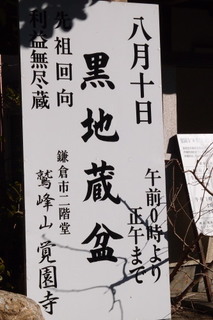 八月十日
午前0時より
正午まで
黒地蔵盆
鎌倉市二階堂
鷲峰山覚園寺
先祖回向
利益無尽蔵